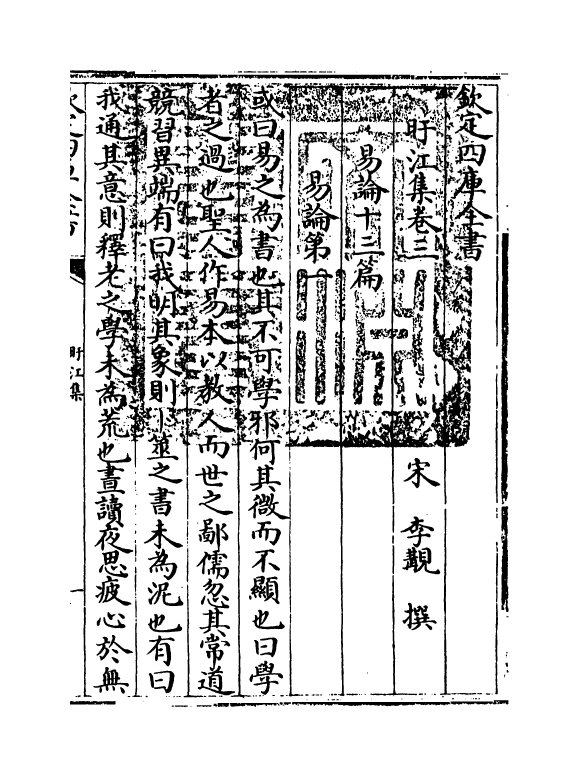 欽定四庫全書
旴江集卷三
宋 李覯 撰
易論十三篇
易論第一
或曰易之為書也其不可學邪何其微而不顯也曰學
者之過也聖人作易本以教人而世之鄙儒忽其常道
競習異端有曰我明其象則卜筮之書未為泥也有曰
我通其意則釋老之學未為荒也晝讀夜思疲心於無
旴江集
一